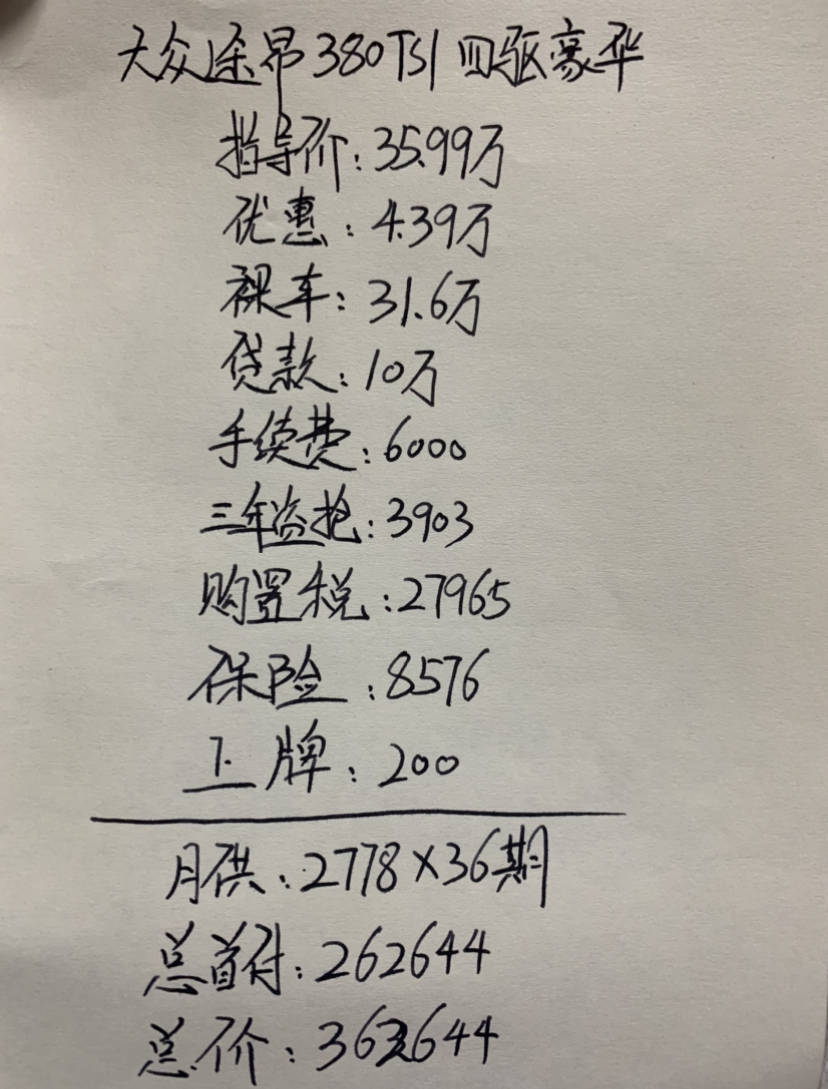 大众途昂380TSI 四驱豪华
指导价:35.99万
优惠:4.39万
裸车:31.6万
贷款:10万
手续费:6000
三年盗抢:3903
购置税:27965
保险:8576
上牌:200
月供:2778×36期
总首付:262644
总价:362644